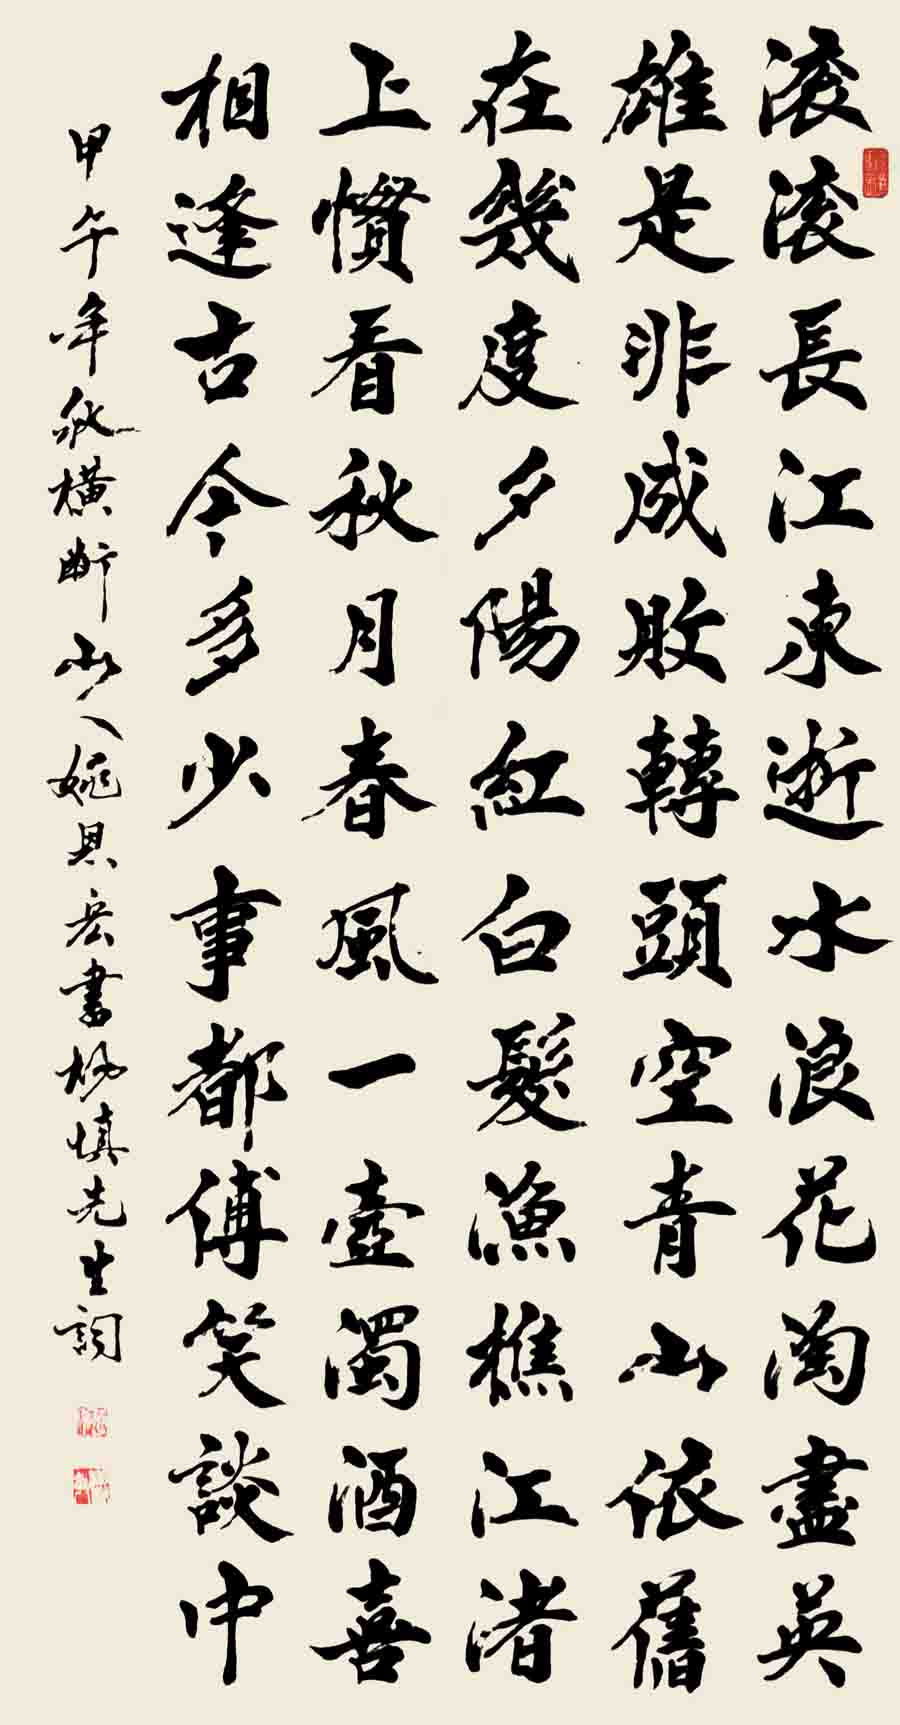 滚滚長江東逝水浪花淘盡英
雄是非成敗轉頭空青山依舊
在幾度夕陽紅白髮漁樵江渚
上慣看秋月春風一壺濁酒喜
相逢古今多少事都傅笑談中
甲午年秋橫斷山人姚具宏書楊慎先生詞